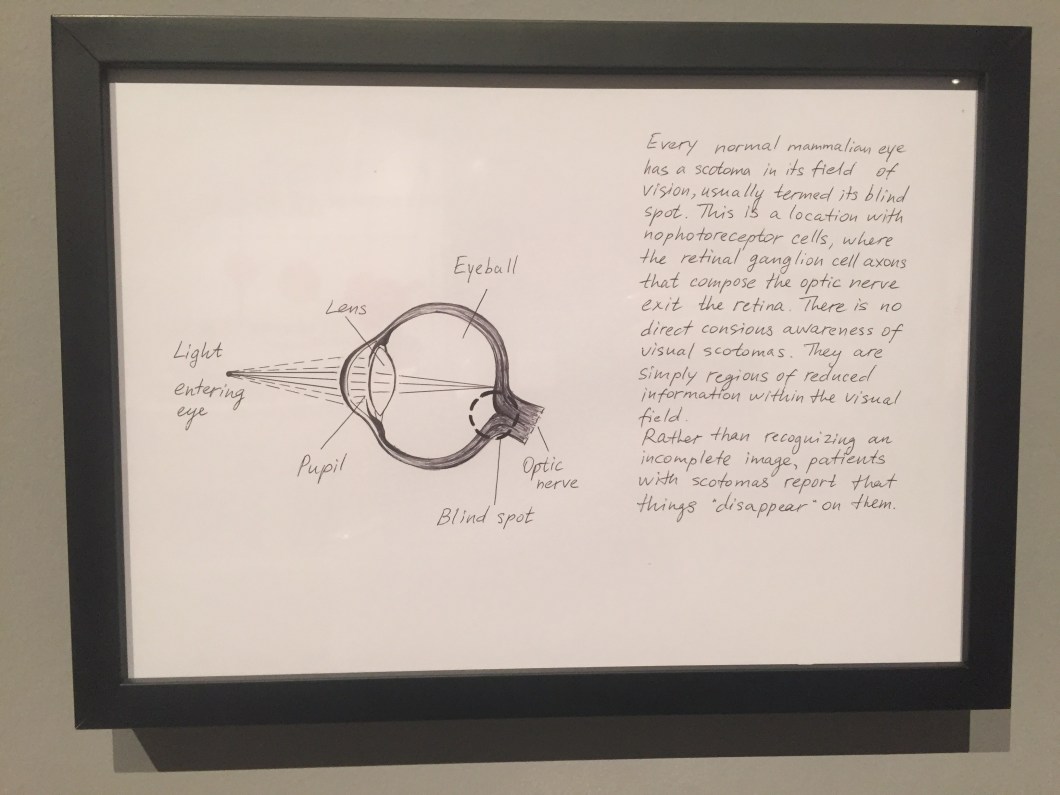 Every normal mammalian eye
has a scotoma in its field of
vision, usually termed its blind
spot. This is a location with
nophotoreceptor cells, where
the retinal ganglion cell axons
that compose the optic nerve
exit the retina. There is no
direct consious awareness of
visual scotomas. They are
simply regions of reduced
information within the visual
field.
Rather than recognizing an
incomplete image, patients
with scotomas report that
things "disappear" on them.
Eyeball
Lens
Light
entering
eye
Pupil
Optic
nerve
Blind spot